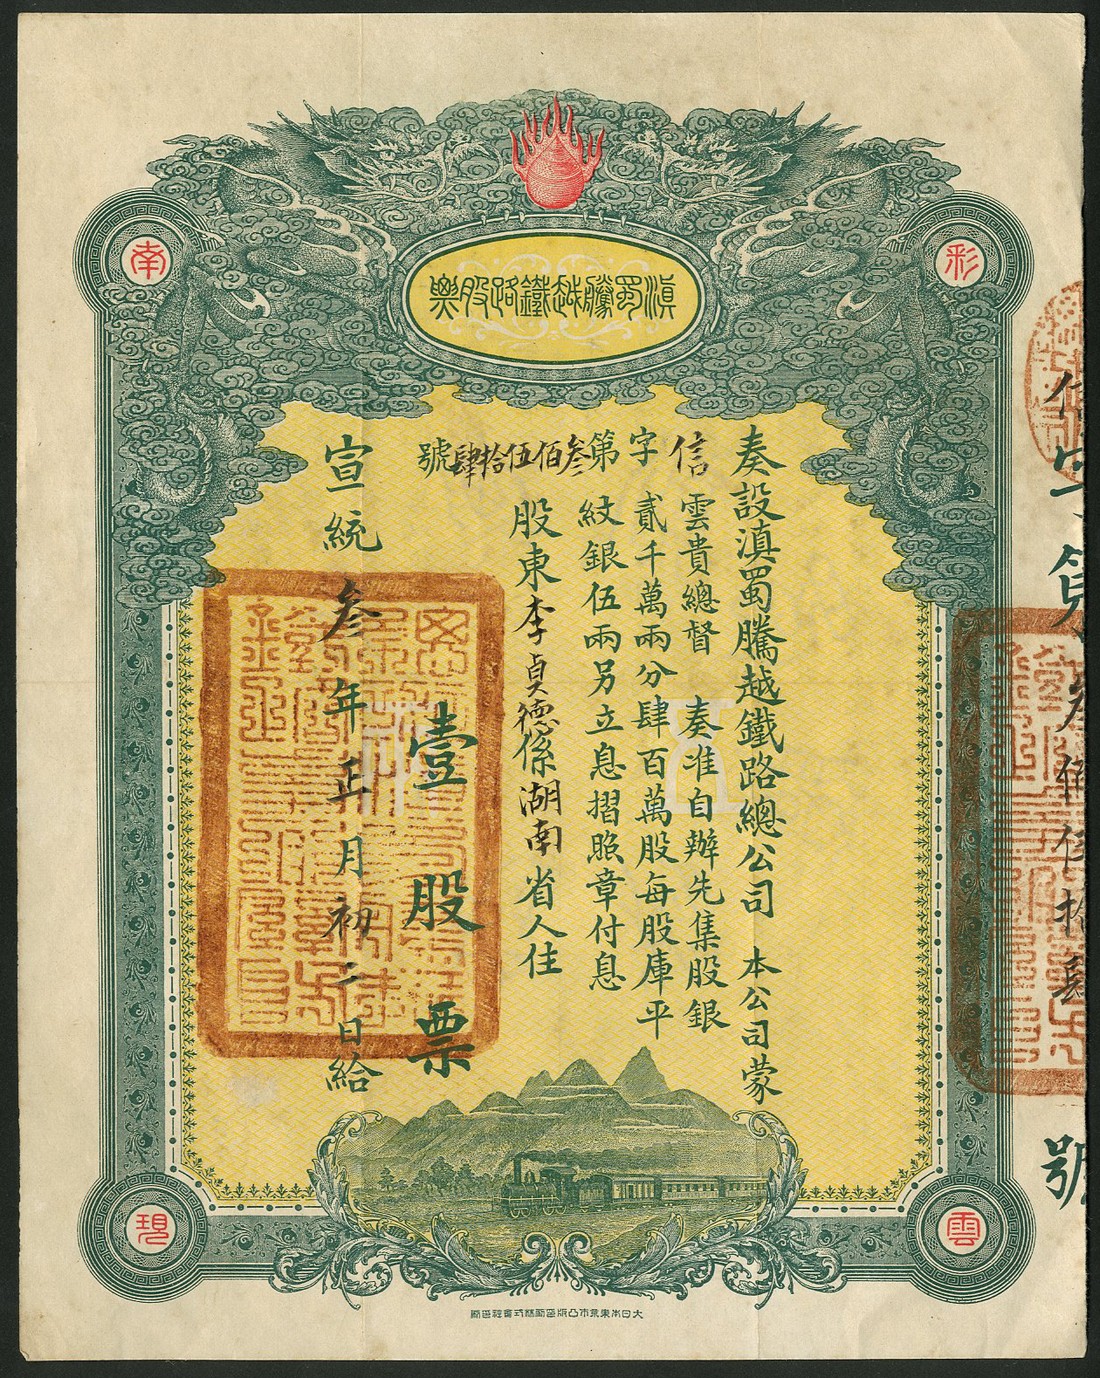 滇蜀騰越鐵路股票
彩
南
雲
現
奏設滇蜀騰越鐵路總公司 本公司蒙
雲貴總督 奏准自辦先集股銀
貳千萬兩分肆百萬股每股庫平
紋銀伍兩另立息摺照章付息
信字第叁佰伍拾肆號
股東李貞德係湖南省人住
壹股票
宣統叁年正月初二日給
號
大日本東京市凸版印刷株式會社印刷